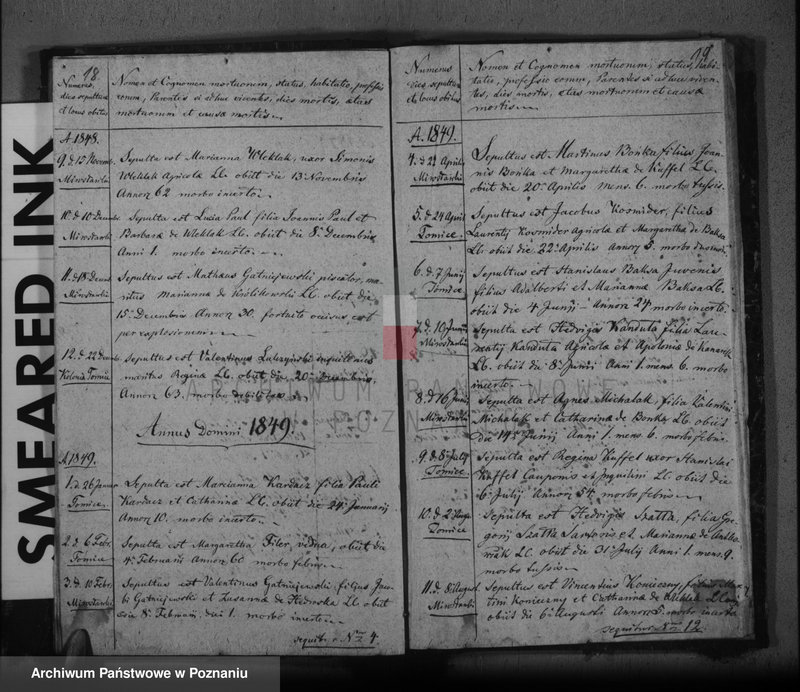 18
Numerus, dies sepulturae et locus obitus
Nomen et Cognomen mortuorum, status, habitatio, professio
eorum, Parentes si adhuc viventes, dies mortis, aetas
mortuorum et causa mortis
A. 1848.
9. d 15 Novemb. Sepulta est Marianna Weklak, uxor Simonis
Mirosławki Weklak Agricola LC. obiit die 13 Novembris
Annor 62 morbo incerto
10. d 10 Decemb. Sepulta est Lucia Paul filia Joannis Paul et
Mirosławki Barbara de Weklak LC. obiit die 8 Decembris
Anni 1. morbo incerto.
11. d 18 Decemb. Sepultus est Mathaus Gatniejewski piscator, ma-
Mirosławki ritus Marianna de LC. obiit die
15 Decembris Annor 30. fortuito occisus est
per explosionem
12. d. 22 Decemb. Sepultus est Valentinus inquilinus
Kolonia Tomice maritus Regina LC. obiit die 20 Decembris
Annor 63. morbo debilitas
Annus Domini 1849.
A. 1849.
1. d. 26 Januar Sepulta est Marcianna Kardacz filia Pauli
Tomice. Kardacz et Catharina LC. obiit die 24 Januarij
Annor 10. morbo incerto.
2. d 6 Febr. Sepulta est Margaretha Filer, vidua, obiit die
Tomice 4 Februarii Annor 60 morbo febris
3. d. 10 Febr. Sepultus est Valentinus Gatniejewski, filius Jaco-
Mirosławki bi Gatniejewski et Susanna de LC obiit
die 8 Februarij, dni 1. morbo incerto
sequitur Nro 4.
19
Numerus dies sepulturae et locus obitus
Nomen et Cognomen mortuorum, status, habi-
tatio, professio eorum, Parentes si adhuc viven-
tes, dies mortis, aetas mortuorum et causa
mortis
A. 1849.
4. d 21 Aprilis Sepultus est Martinus Bońka filius Joan-
Mirosławki nis Bońka et Margaretha de Kaffel LC.
obiit die 20 Aprilis mens. 6. morbo tussis.
5. d 24 April Sepultus est Jacobus Kosmider, filius
Tomice Laurenty Kosmider Agricola et Margaretha de Baksa
LC. obiit die 22 Aprilis Annor 5. morbo
6. d. 7 Junij Sepultus est Stanislaus Baksa Juvenis
Tomice filius Adalberti et Marianna Baksa LC.
obiit die 4 Junij Annor 24 morbo incerto.
7. d. 10 Junij Sepulta est Hedvigis Kanduta filia Lau-
Mirosławki renty Kanduta Agricola et Apolonia de
LC. obiit die 8 Junii Anni 1. mens. 6. morbo
incerto.
8. d 16 Junij Sepulta est Agnes Michalak, filia Valentini
Mirosławki Michalak et Catharina de Bonka LC. obiit
die 14 Junij Anni 1. mens. 6. morbo febris.
9. d 8 Julij Sepulta est Regina Kaffel uxor Stanislai
Tomice Kaffel Cauponis et Inquilini LC. obiit die
6 Julij Annor 54. morbo febris
10. d. 2 August Sepulta est Hedvigis Szatta, filia Gre-
Tomice gorij Szatta Sartoris et Marianna de
LC. obiit die 31 Julij Anni 1. mens. 9.
morbo tussis
11. d. 8 August Sepultus est Vincentius Konieczny, filius Mar-
Mirosławki tini Konieczny et Catharina de Weklak LC.
obiit die 6 Augusti Annor 5. morbo incerto
sequitur Nro 12.
SMEARED INK
ARCHIWUM PAŃSTWOWE
W POZNANIU
Archiwum Państwowe w Poznaniu